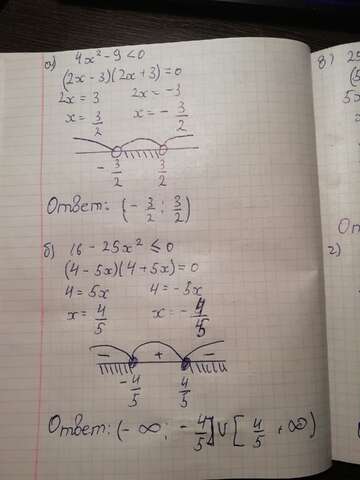 а) 4x² - 9 < 0
(2x - 3)(2x + 3) = 0
2x = 3   2x = -3
x = 3/2   x = -3/2
-3/2   3/2
Ответ: (-3/2; 3/2)
б) 16 - 25x² ≤ 0
(4 - 5x)(4 + 5x) = 0
4 = 5x   4 = -5x
x = 4/5   x = -4/5
-   +   -
-4/5   4/5
Ответ: (-∞; -4/5] U [4/5 +∞)
в) 25
5x
От
г)